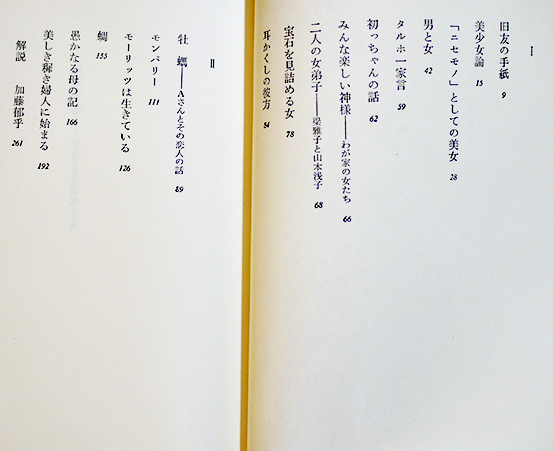 I
旧友の手紙 9
美少女論 15
「ニセモノ」としての美女 28
男と女 42
タルホ一家言 59
初っちゃんの話 62
みんな楽しい神様――わが家の女たち 66
二人の女弟子――梁雅子と山本浅子 68
宝石を見詰める女 78
耳かくしの彼方 84
II
牡蠣――Aさんとその恋人の話 89
モンパリー 111
モーリッツは生きている 126
蠣 155
愚かなる母の記 166
美しき穉き婦人に始まる 192
解説 加藤郁乎 261